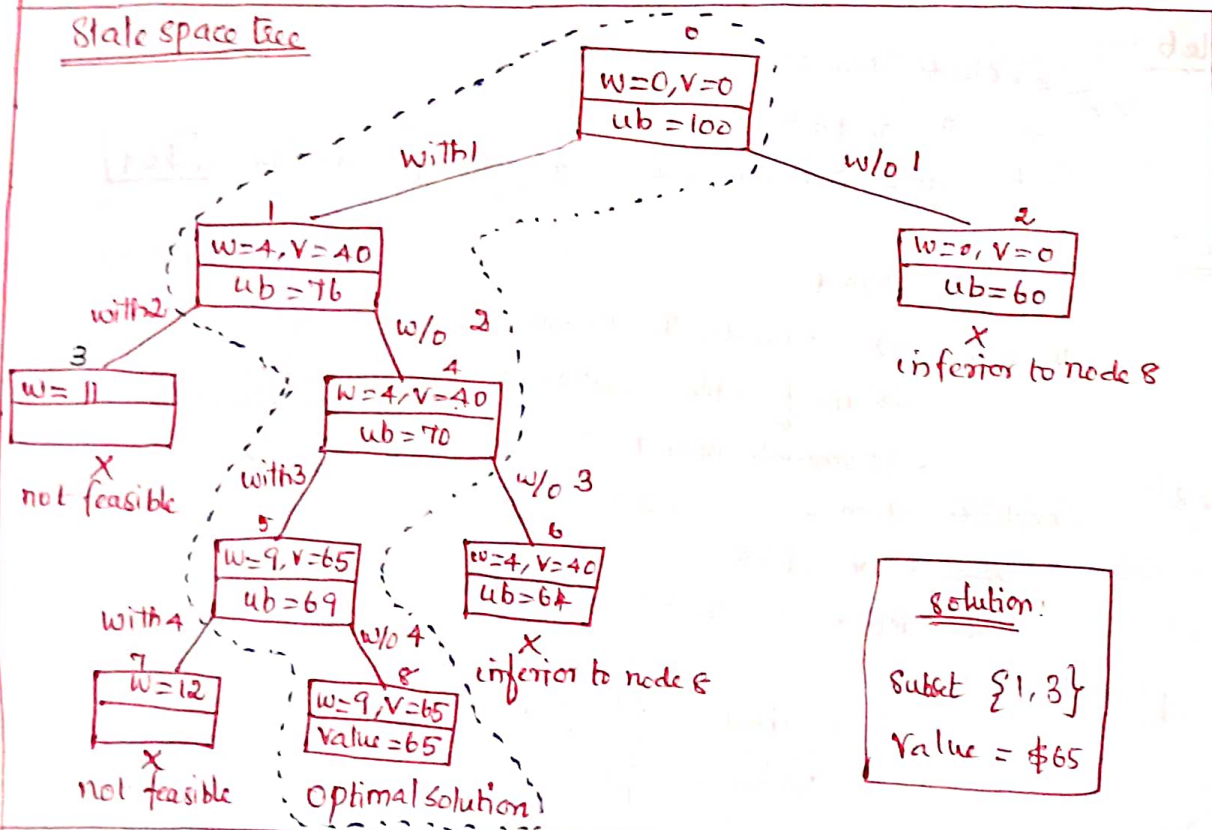 State space tree
0
W=0, V=0
ub = 100
with 1
w/o 1
1
W=4, V=40
ub = 76
2
W=0, V=0
ub=60
X
inferior to node 8
with 2
w/o 2
3
W= 11
X
not feasible
4
W=4, V=40
ub=70
with 3
w/o 3
5
W=9, V=65
ub=69
6
W=4, V=40
ub=64
X
inferior to node 8
with 4
w/o 4
7
W=12
X
not feasible
8
W=9, V=65
Value = 65
optimal solution
solution:
Subset {1,3}
Value = $65